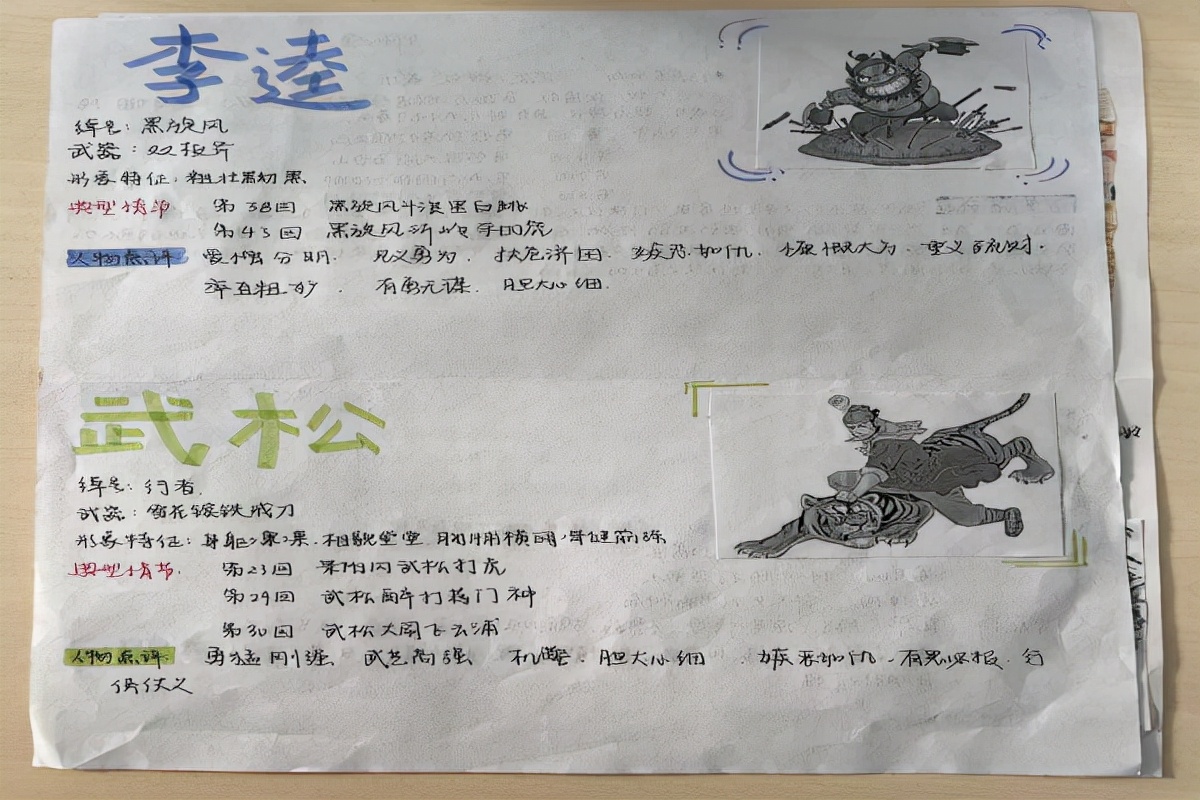 李逵
绰号：黑旋风
武器：双板斧
形象特征：粗壮黝黑
典型情节 第38回 黑旋风斗浪里白跳
第43回 黑旋风沂岭
人物点评 爱憎分明、见义勇为、扶危济困、嫉恶如仇、慷慨大方、重义疏财、
率直粗 、有勇无谋、胆大心细.
武松
绰号：行者.
武器：雪花镔铁戒刀
形象特征：身躯凛凛、相貌堂堂 胸脯横阔
典型情节. 第23回 景阳冈武松打虎
第29回 武松醉打蒋门神
第30回 武松大闹飞云浦
人物点评 勇猛刚强 武艺高强 机警、胆大心细 、嫉恶如仇、有恩必报、行
侠仗义